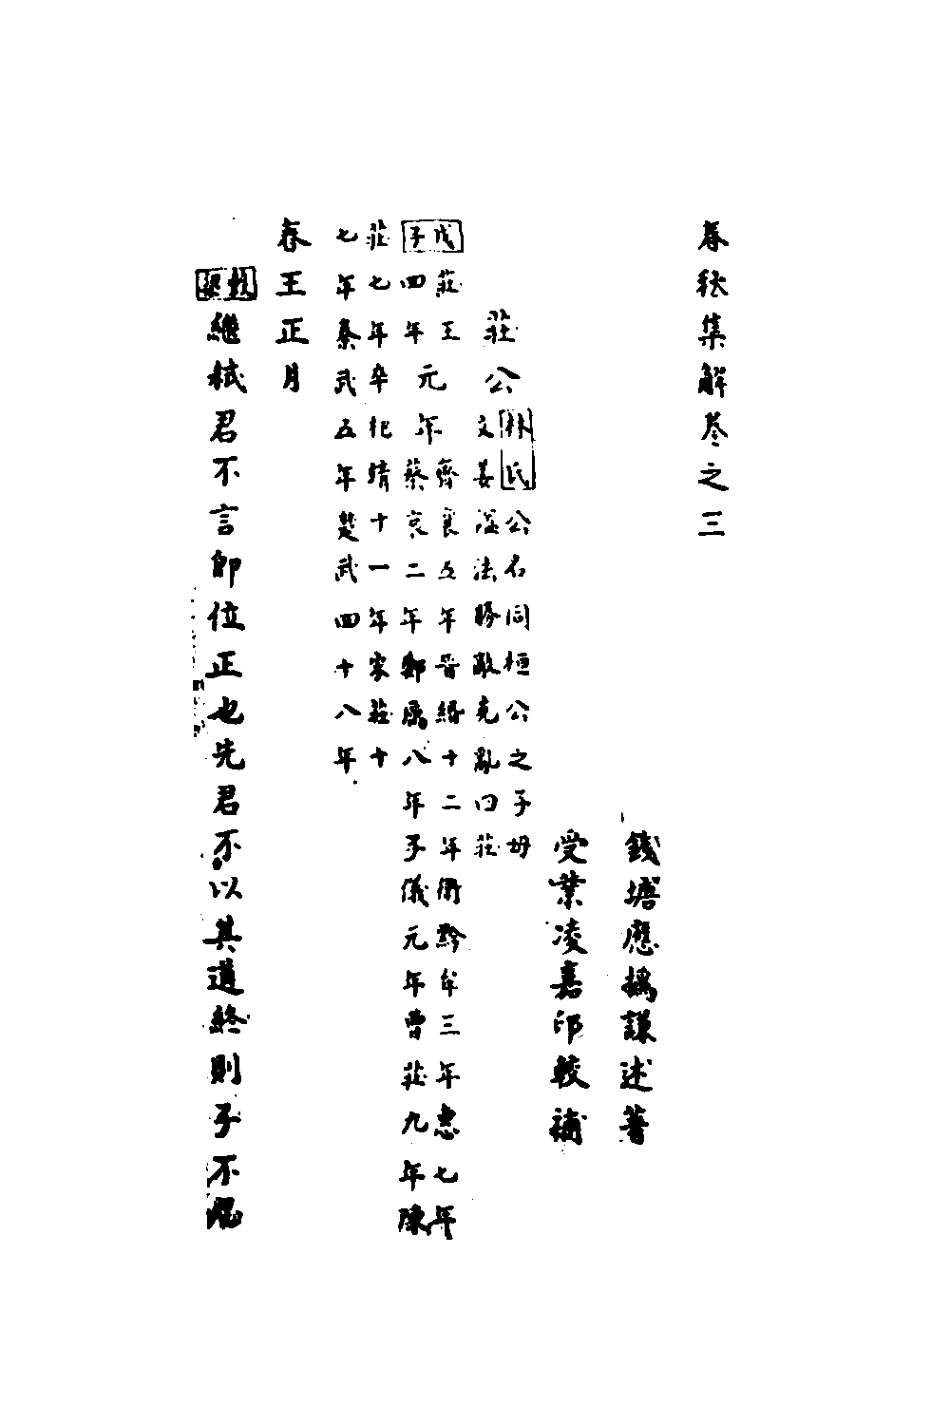 春秋集解卷之三
錢塘應撝謙述著
受業凌嘉印較補
莊公 林氏 公名同桓公之子母
文姜諡法勝敵克亂曰莊
戊子 莊王四年 元年 齊襄五年晉緡十二年衛黔牟三年惠七年
蔡哀二年鄭厲八年子儀元年曹莊九年陳
莊七年卒杞靖十一年宋莊十
七年秦武五年楚武四十八年
春王正月
穀梁 繼弒君不言即位正也先君不以其道終則子不忍